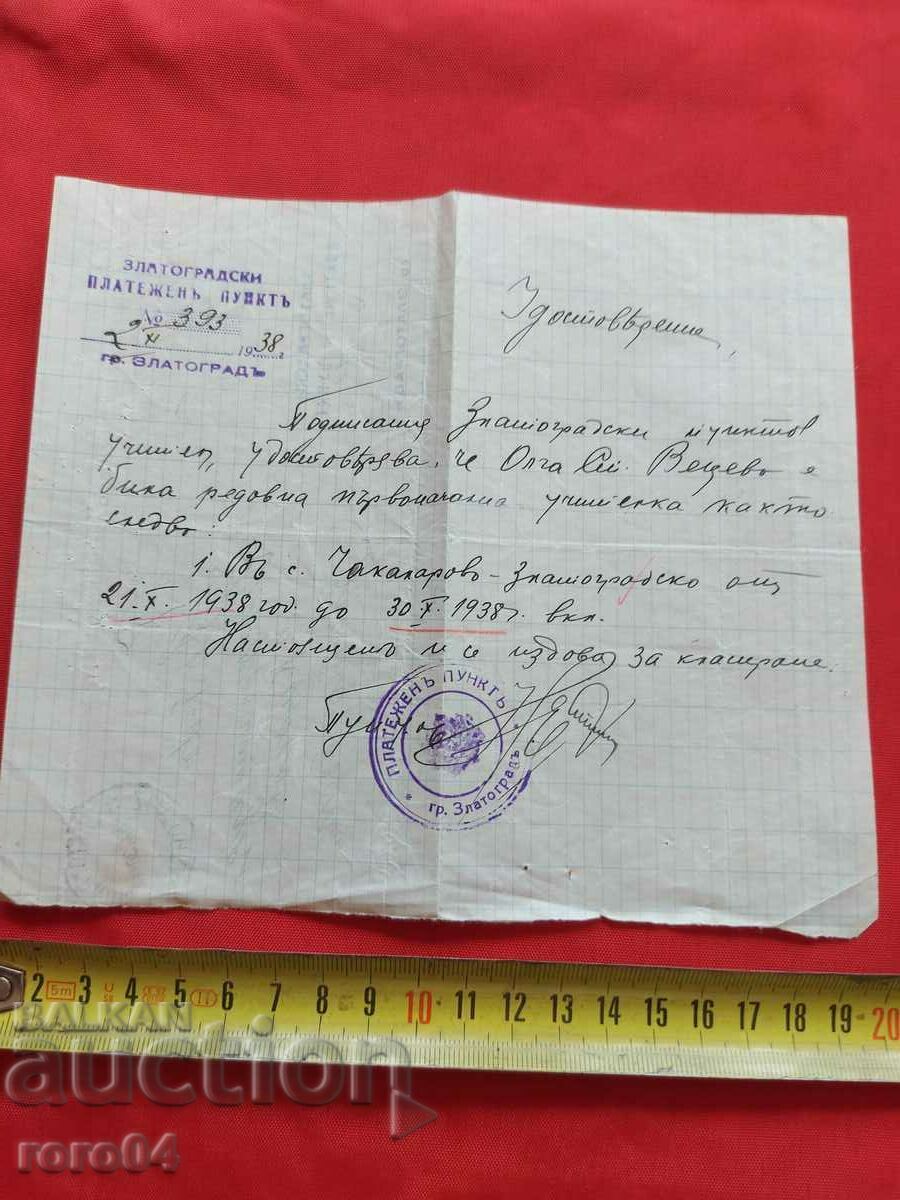 ЗЛАТОГРАДСКИ
ПЛАТЕЖЕНЪ ПУНКТЪ
№ 393
2 XI 1938 г.
гр. ЗЛАТОГРАДЪ
Удостовѣрение,
Подписания Златоградски пунктов
учител, удостовѣрява, че Олга Ст. Вецева е
била редовна първоначална учителка както
следва:
1. Въ с. Чакаларово - Златоградско от
21. X. 1938 год. до 30 X. 1938 г. вкл.
Настоящето и се издава за класиране.
ПЛАТЕЖЕНЪ ПУНКТЪ
гр. Златоградъ
2 3 4 5 6 7 8 9 10 11 12 13 14 15 16 17 18 19 20
5m
II
BALKAN
auction
roro04